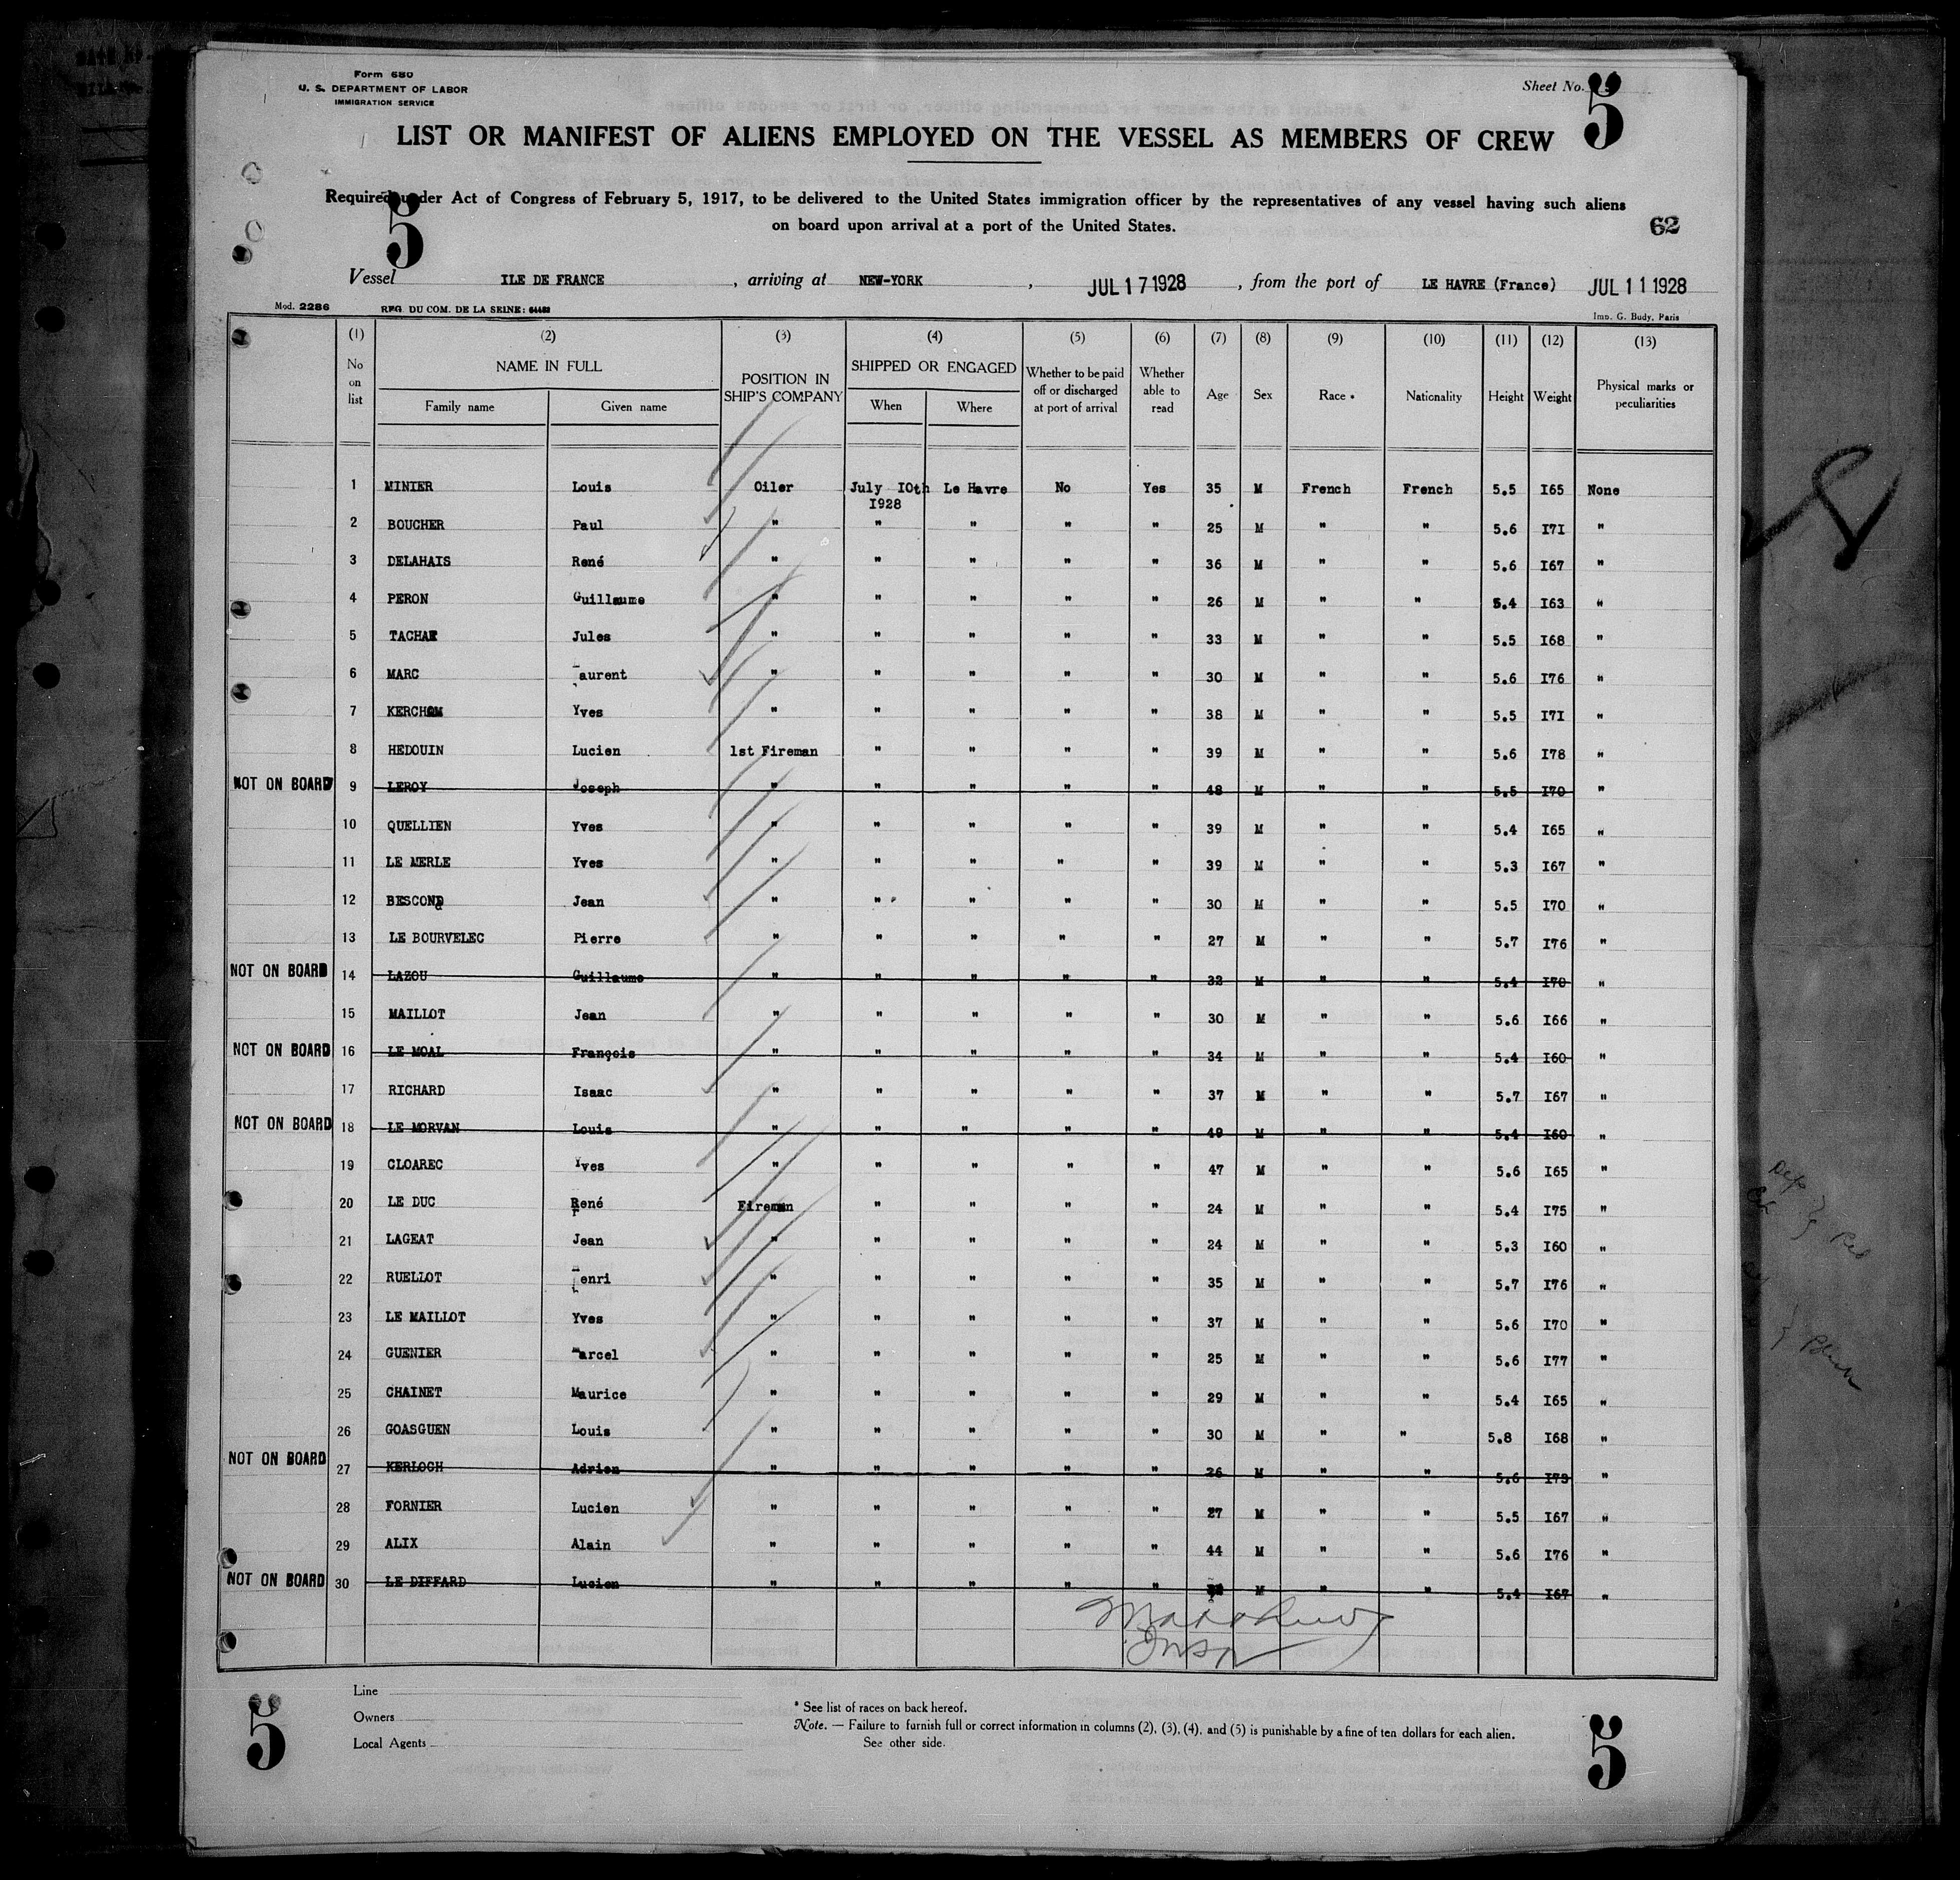 Form 680
U. S. DEPARTMENT OF LABOR
IMMIGRATION SERVICE
Sheet No. 5
LIST OR MANIFEST OF ALIENS EMPLOYED ON THE VESSEL AS MEMBERS OF CREW
Required under Act of Congress of February 5, 1917, to be delivered to the United States immigration officer by the representatives of any vessel having such aliens
on board upon arrival at a port of the United States.
62
5
Vessel ILE DE FRANCE , arriving at NEW-YORK , JUL 17 1928 , from the port of LE HAVRE (France) JUL 11 1928
Mod. 2286 REG. DU COM. DE LA SEINE: Imp. G. Budy, Paris
(1) (2) (3) (4) (5) (6) (7) (8) (9) (10) (11) (12) (13)
No on list NAME IN FULL Family name Given name POSITION IN SHIP'S COMPANY SHIPPED OR ENGAGED When Where Whether to be paid off or discharged at port of arrival Whether able to read Age Sex Race * Nationality Height Weight Physical marks or peculiarities
1 MINIER Louis Oiler July 10th 1928 Le Havre No Yes 35 M French French 5.5 I65 None
2 BOUCHER Paul " " " " " 25 M " " 5.6 I7I "
3 DELAHAIS René " " " " " 36 M " " 5.6 I67 "
4 PERON Guillaume " " " " " 26 M " " 5.4 I63 "
5 Jules " " " " " 33 M " " 5.5 I68 "
6 MARC aurent " " " " " 30 M " " 5.6 I76 "
7 KERCHOM Yves " " " " " 38 M " " 5.5 I7I "
8 HEDOUIN Lucien 1st Fireman " " " " 39 M " " 5.6 I78 "
NOT ON BOARD 9 LEROY Joseph " " " " " 48 M " " 5.5 I70 "
10 QUELLIEN Yves " " " " " 39 M " " 5.4 I65 "
11 LE MERLE Yves " " " " " 39 M " " 5.3 I67 "
12 BESCOND Jean " " " " " 30 M " " 5.5 I70 "
13 LE BOURVELEC Pierre " " " " " 27 M " " 5.7 I76 "
NOT ON BOARD 14 LAZOU Guillaume " " " " " 32 M " " 5.4 I70 "
15 MAILLOT Jean " " " " " 30 M " " 5.6 I66 "
NOT ON BOARD 16 LE MOAL François " " " " " 34 M " " 5.4 I60 "
17 RICHARD Isaac " " " " " 37 M " " 5.7 I67 "
NOT ON BOARD 18 LE MORVAN Louis " " " " " M " " 5.4 I60 "
19 CLOAREC Yves " " " " " 47 M " " 5.6 I65 "
20 LE DUC René Fireman " " " " 24 M " " 5.4 I75 "
21 LAGEAT Jean " " " " " 24 M " " 5.3 I60 "
22 RUELLOT enri " " " " " 35 M " " 5.7 I76 "
23 LE MAILLOT Yves " " " " " 37 M " " 5.6 I70 "
24 GUENIER Marcel " " " " " 25 M " " 5.6 I77 "
25 CHAINET Maurice " " " " " 29 M " " 5.4 I65 "
26 GOASGUEN Louis " " " " " 30 M " " 5.8 I68 "
NOT ON BOARD 27 KERLOCH Adrien " " " " " 26 M " " 5.6 I73 "
28 FORNIER Lucien " " " " " 27 M " " 5.5 I67 "
29 ALIX Alain " " " " " 44 M " " 5.6 I76 "
NOT ON BOARD 30 LE DIFFARD Lucien " " " " " M " " 5.4 I67 "
Insp
Line
Owners
Local Agents
* See list of races on back hereof.
Note. — Failure to furnish full or correct information in columns (2), (3), (4), and (5) is punishable by a fine of ten dollars for each alien.
See other side.
5
5